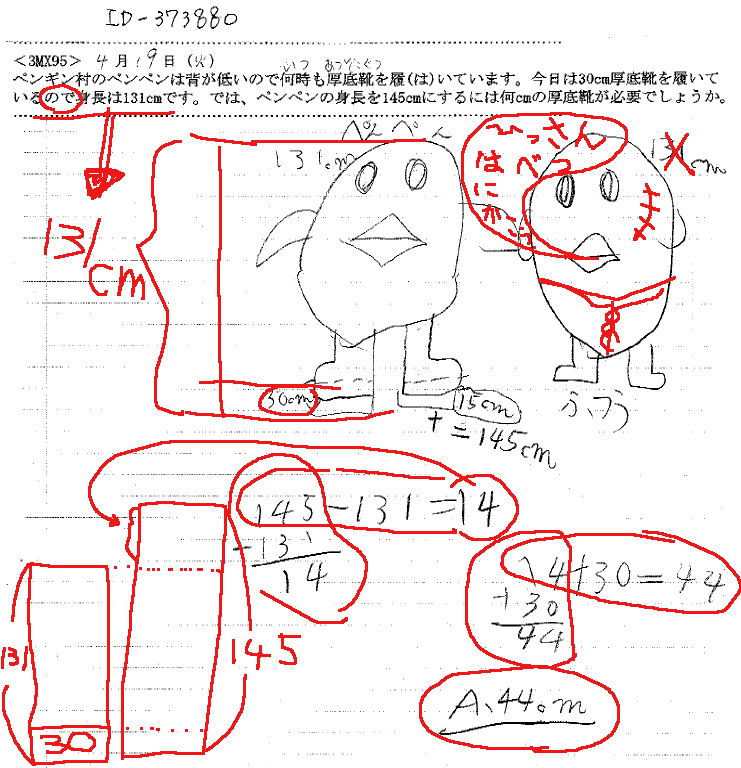 ID-373880
<3MX95> 4月19日(火)
いつ あつぞこぐつ
ペンギン村のペンペンは背が低いので何時も厚底靴を履(は)いています。今日は30cm厚底靴を履いて
いるので身長は131cmです。では、ペンペンの身長を145cmにするには何cmの厚底靴が必要でしょうか。
ぺんぺん
131cm
ひっさん
はべつ
にかこう
131cm
131
cm
30cm
15cm
+=145cm
ふつう
145-131=14
145
-131
14
14+30=44
14
+30
44
A.44cm
131
145
30